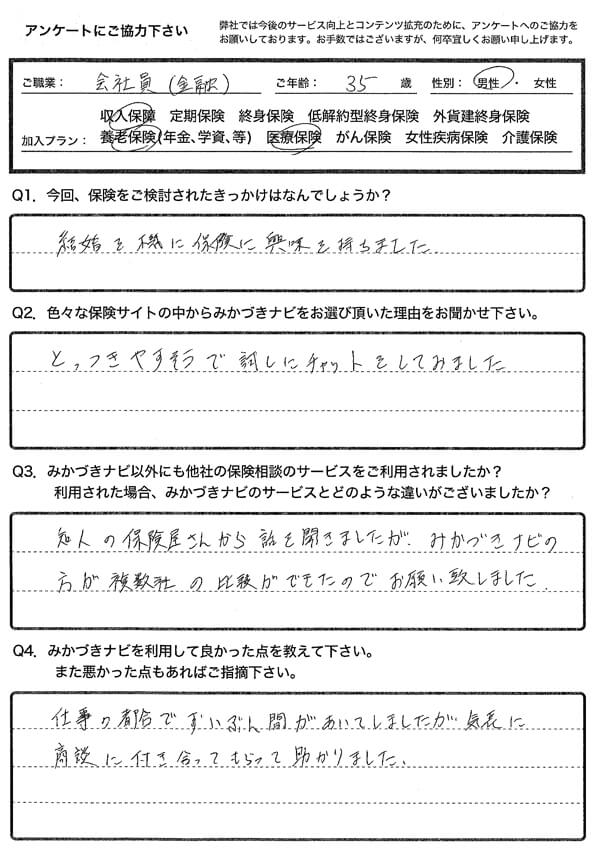 アンケートにご協力下さい
弊社では今後のサービス向上とコンテンツ拡充のために、アンケートへのご協力を
お願いしております。お手数ではございますが、何卒宜しくお願い申し上げます。
ご職業： 会社員(金融) ご年齢： 35 歳 性別： 男性 ・ 女性
収入保障 定期保険 終身保険 低解約型終身保険 外貨建終身保険
加入プラン： 養老保険(年金、学資、等) 医療保険 がん保険 女性疾病保険 介護保険
Q1. 今回、保険をご検討されたきっかけはなんでしょうか？
結婚を機に保険に興味を持ちました.
Q2. 色々な保険サイトの中からみかづきナビをお選び頂いた理由をお聞かせ下さい。
とっつきやすそうで試しにチャットをしてみました
Q3. みかづきナビ以外にも他社の保険相談のサービスをご利用されましたか？
利用された場合、みかづきナビのサービスとどのような違いがございましたか？
知人の保険屋さんから話を聞きましたが、みかづきナビの
方が複数社の比較ができたのでお願い致しました.
Q4. みかづきナビを利用して良かった点を教えて下さい。
また悪かった点もあればご指摘下さい。
仕事の都合でずいぶん間があいてしましたが気長に
商談に付き合ってもらって助かりました.